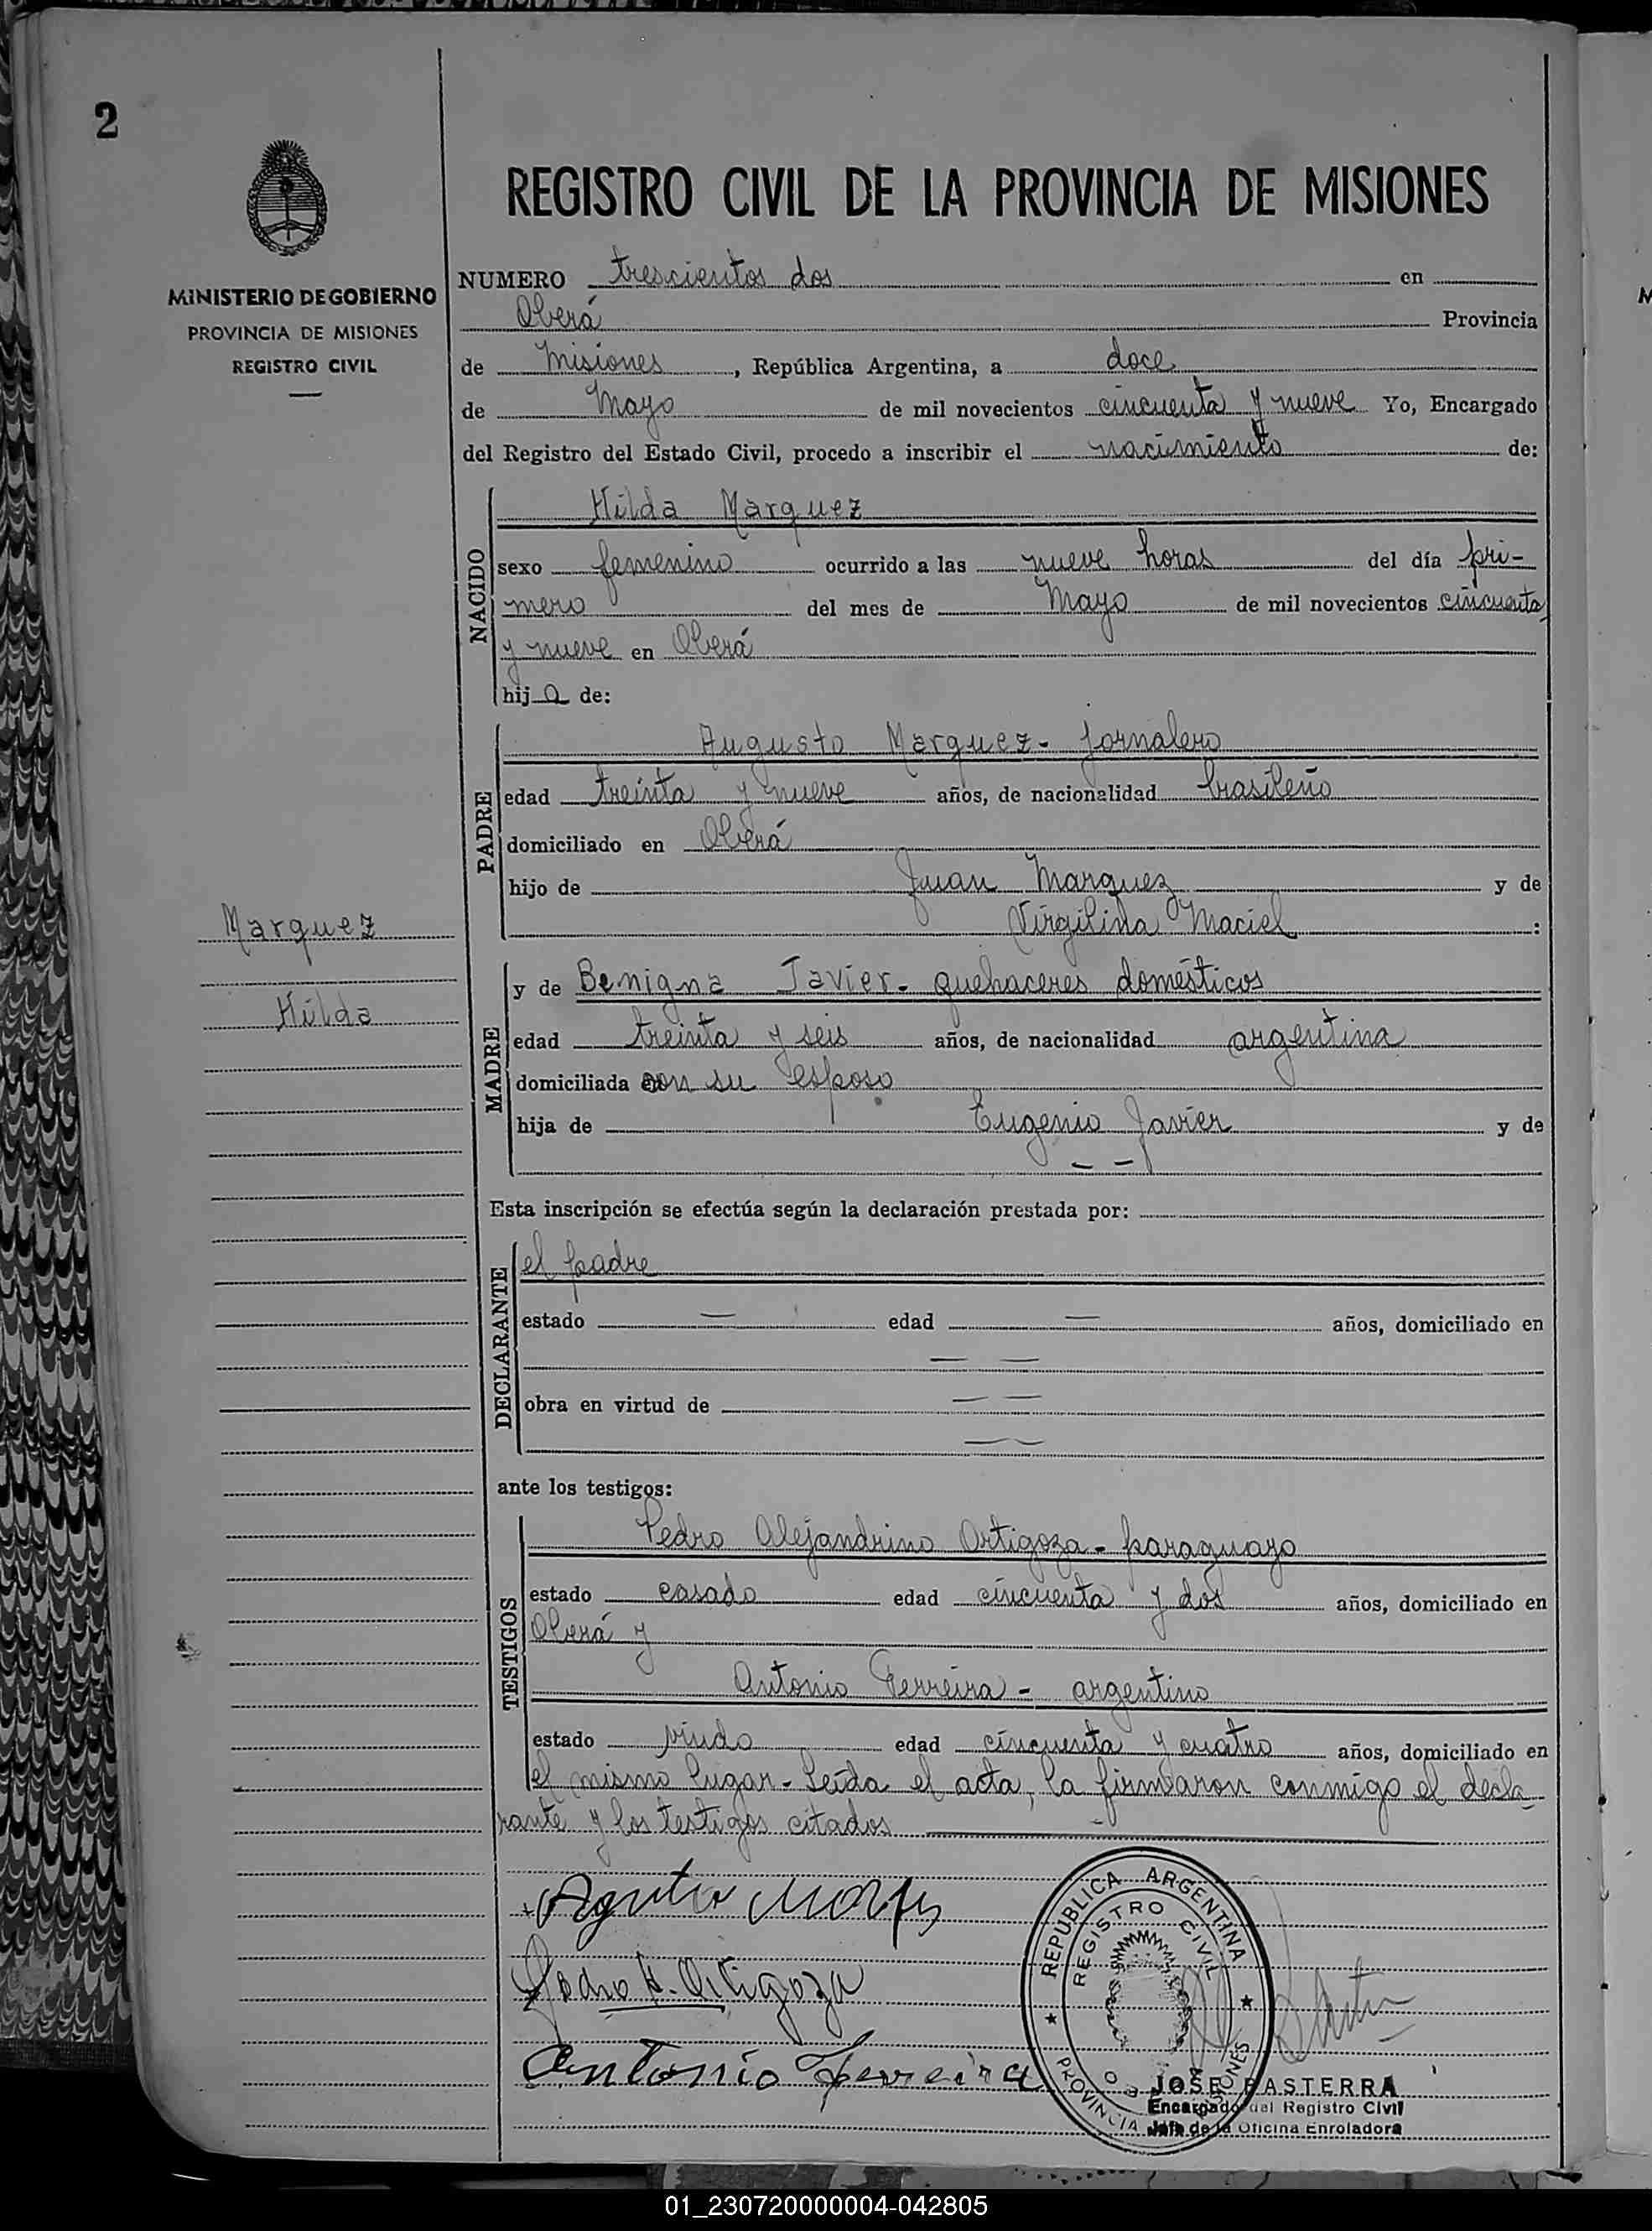 2
MINISTERIO DE GOBIERNO
PROVINCIA DE MISIONES
REGISTRO CIVIL
REGISTRO CIVIL DE LA PROVINCIA DE MISIONES
NUMERO trescientos dos en
Oberá Provincia
de Misiones, República Argentina, a doce
de Mayo de mil novecientos cincuenta y nueve Yo, Encargado
del Registro del Estado Civil, procedo a inscribir el nacimiento de:
NACIDO
Hilda Marquez
sexo femenino ocurrido a las nueve horas del día pri-
mero del mes de Mayo de mil novecientos cincuenta
y nueve en Oberá
hija de:
PADRE
Augusto Marquez - Jornalero
edad treinta y nueve años, de nacionalidad brasileño
domiciliado en Oberá
hijo de Juan Marquez y de
Virgilina Maciel :
Marquez
Hilda
MADRE
y de Benigna Javier - quehaceres domésticos
edad treinta y seis años, de nacionalidad argentina
domiciliada con su esposo
hija de Eugenio Javier y de
— —
Esta inscripción se efectúa según la declaración prestada por:
DECLARANTE
el padre
estado — edad — años, domiciliado en
— —
obra en virtud de — —
— —
ante los testigos:
TESTIGOS
Pedro Alejandrino Ortigoza - paraguayo
estado casado edad cincuenta y dos años, domiciliado en
Oberá y
Antonio Ferreira - argentino
estado viudo edad cincuenta y cuatro años, domiciliado en
el mismo lugar - Leída el acta, la firmaron conmigo el decla-
rante y los testigos citados
Pedro A. Ortigoza
Antonio Ferreira
REPUBLICA ARGENTINA
REGISTRO CIVIL
PROVINCIA MISIONES
JOSE BASTERRA
Encargado del Registro Civil
Jefe de la Oficina Enroladora
01_230720000004-042805